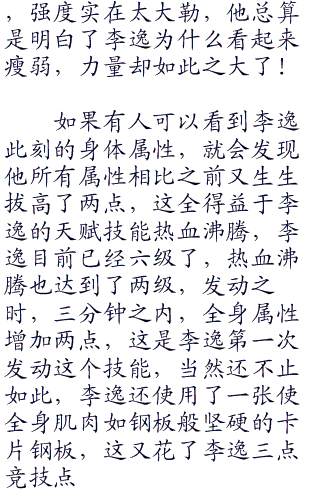 ，强度实在太大勒，他总算
是明白了李逸为什么看起来
瘦弱，力量却如此之大了！
如果有人可以看到李逸
此刻的身体属性，就会发现
他所有属性相比之前又生生
拔高了两点，这全得益于李
逸的天赋技能热血沸腾，李
逸目前已经六级了，热血沸
腾也达到了两级，发动之
时，三分钟之内，全身属性
增加两点，这是李逸第一次
发动这个技能，当然还不止
如此，李逸还使用了一张使
全身肌肉如钢板般坚硬的卡
片钢板，这又花了李逸三点
竞技点